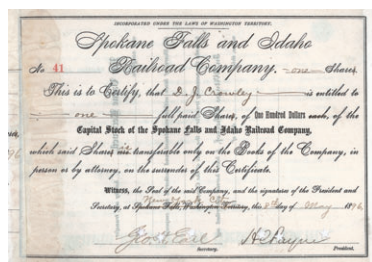 INCORPORATED UNDER THE LAWS OF WASHINGTON TERRITORY.
Spokane Falls and Idaho
No 41 Railroad Company, one Shares.
This is to Certify, that D. J. Crowley is entitled to
one full paid Shares, of One Hundred Dollars each, of the
Capital Stock of the Spokane Falls and Idaho Railroad Company,
which said Shares are transferable only on the Books of the Company, in
person or by attorney, on the surrender of this Certificate.
Witness, the Seal of the said Company, and the signatures of the President and
New York City
Secretary, at Spokane Falls, Washington Territory, this day of May 1896
Secretary. President.